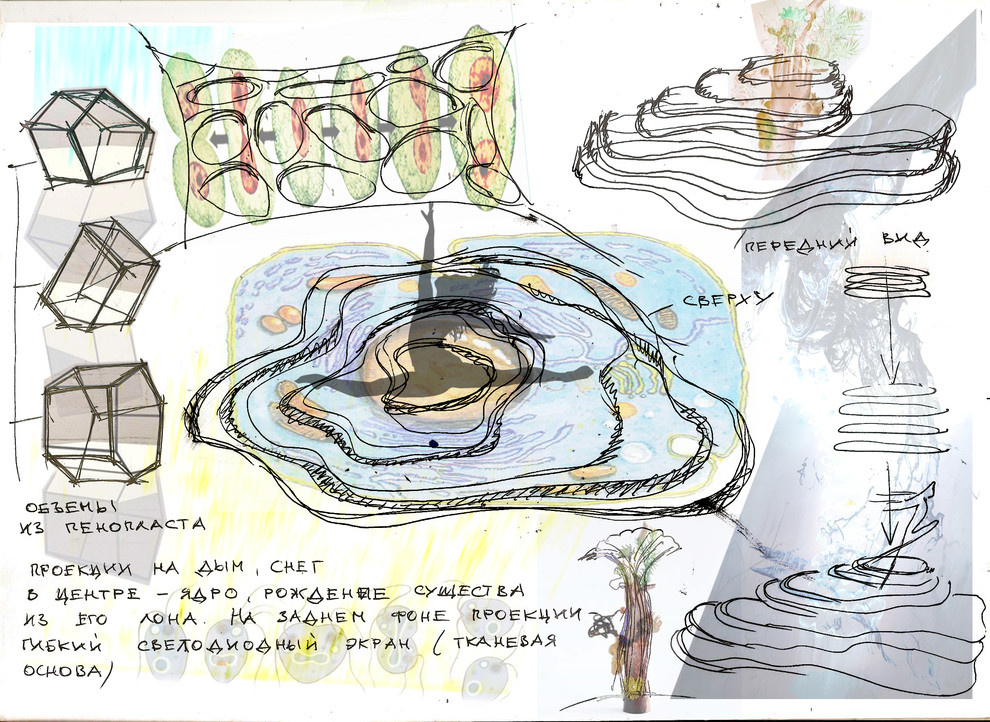 ПЕРЕДНИЙ ВИД
СВЕРХУ
ОБЗЕМЫ
ИЗ ПЕНОПЛАСТА
ПРОЕКЦИИ НА ДЫМ, СНЕГ
В ЦЕНТРЕ – ЯДРО, РОЖДЕНИЕ СУЩЕСТВА
ИЗ ЕГО ЛОНА. НА ЗАДНЕМ ФОНЕ ПРОЕКЦИИ
ГИБКИЙ СВЕТОДИОДНЫЙ ЭКРАН (ТКАНЕВАЯ
ОСНОВА)